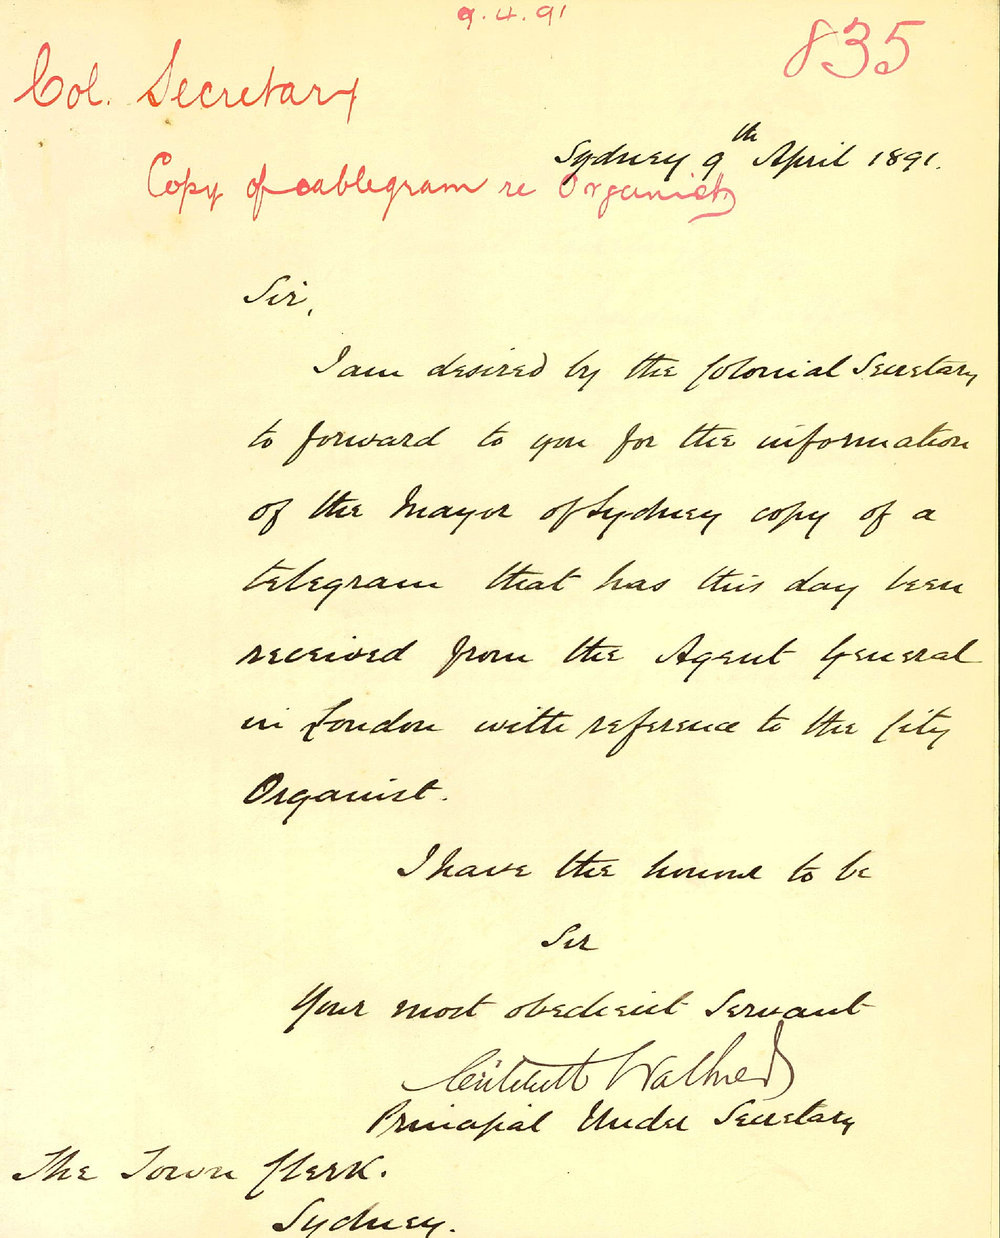 9.4.91
835
Col. Secretary
Sydney 9th April 1891.
Copy of cablegram re Organist
Sir,
I am desired by the Colonial Secretary
to forward to you for the information
of the Mayor of Sydney copy of a
telegram that has this day been
received from the Agent General
in London with reference to the City
Organist.
I have the honour to be
Sir
Your most obedient Servant
Critchett Walker
Principal Under Secretary
The Town Clerk.
Sydney.